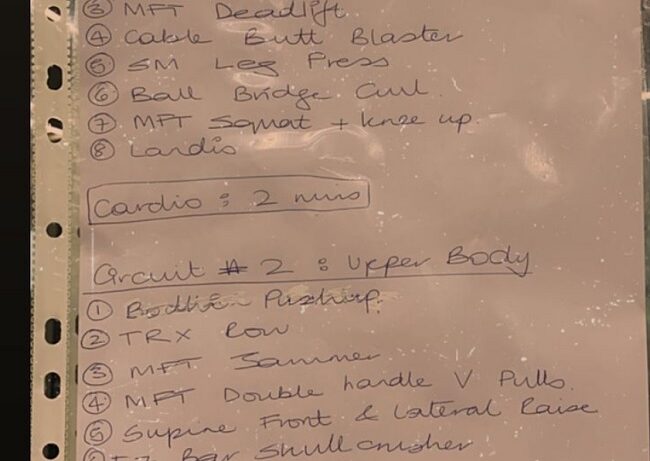 ③ MFT Deadlift.
④ Cable Butt Blaster
⑤ SM Leg Press
⑥ Ball Bridge Curl.
⑦ MFT Squat + knee up.
⑧ Cardio
Cardio : 2 mins
Circuit # 2 : Upper Body
① Pushup.
② TRX Row
③ MFT Jammer
④ MFT Double handle V Pulls.
⑤ Supine Front & Lateral Raise
⑥ EZ Bar Skullcrusher